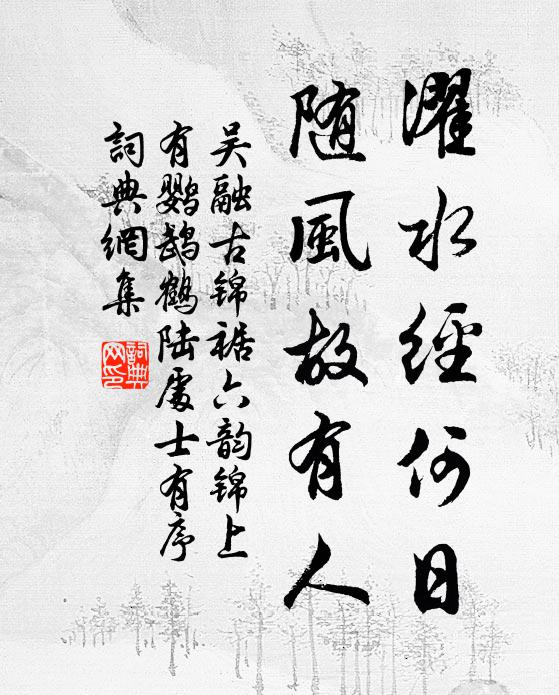 濯水經何日
随風故有人
吴融古锦裾六韵锦上
有鹦鹉鹤陆處士有序
詞典網集
詞典网印